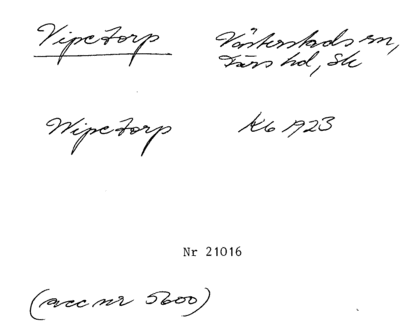 Vipetorp
Västerstads sn,
Färs hd, Sk
Wipetorp
Kb 1923
Nr 21016
(acc nr 5600)